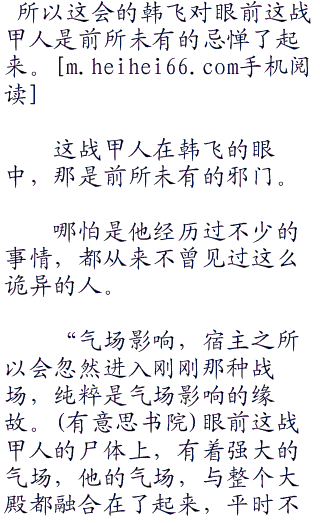 所以这会的韩飞对眼前这战
甲人是前所未有的忌惮了起
来。[m.heihei66.com手机阅
读]
这战甲人在韩飞的眼
中，那是前所未有的邪门。
哪怕是他经历过不少的
事情，都从来不曾见过这么
诡异的人。
“气场影响，宿主之所
以会忽然进入刚刚那种战
场，纯粹是气场影响的缘
故。(有意思书院)眼前这战
甲人的尸体上，有着强大的
气场，他的气场，与整个大
殿都融合在了起来，平时不